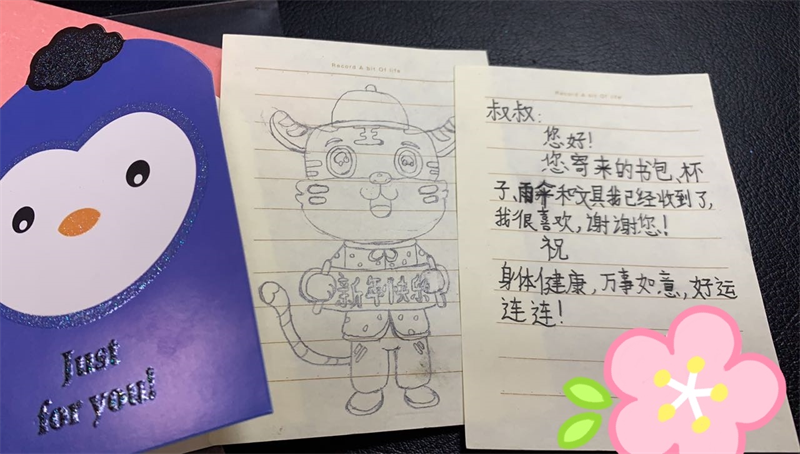 Just
for you!
Record A bit Of life
新年快乐
Record A bit Of life
叔叔:
您好!
您寄来的书包、杯
子、雨伞和文具我已经收到了,
我很喜欢,谢谢您!
祝
身体健康,万事如意,好运
连连!